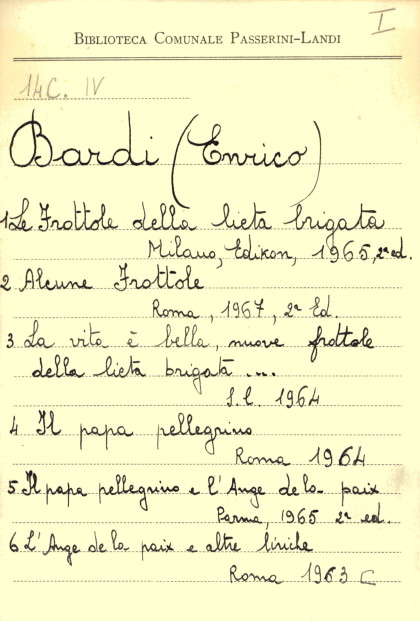 I
BIBLIOTECA COMUNALE PASSERINI-LANDI
14C. IV
Bardi (Enrico)
1 Le Frottole della lieta brigata
Milano, Edikon, 1965, 2ª ed.
2 Alcune Frottole
Roma, 1967, 2ª Ed.
3 La vita è bella, nuove frottole
della lieta brigata ....
S.l. 1964
4 Il papa pellegrino
Roma 1964
5 Il papa pellegrino e l'Ange de la paix
Parma, 1965 2ª ed.
6 L'Ange de la paix e altre liriche
Roma 1963